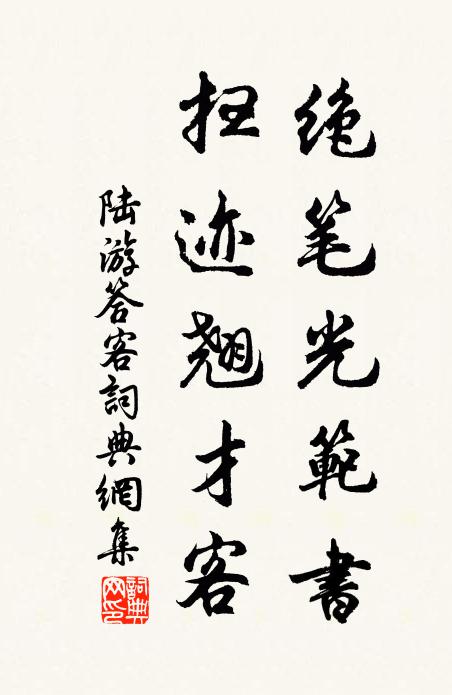 绝笔光範書
扫迹翘才客
陆游答客詞典網集
詞典
网印